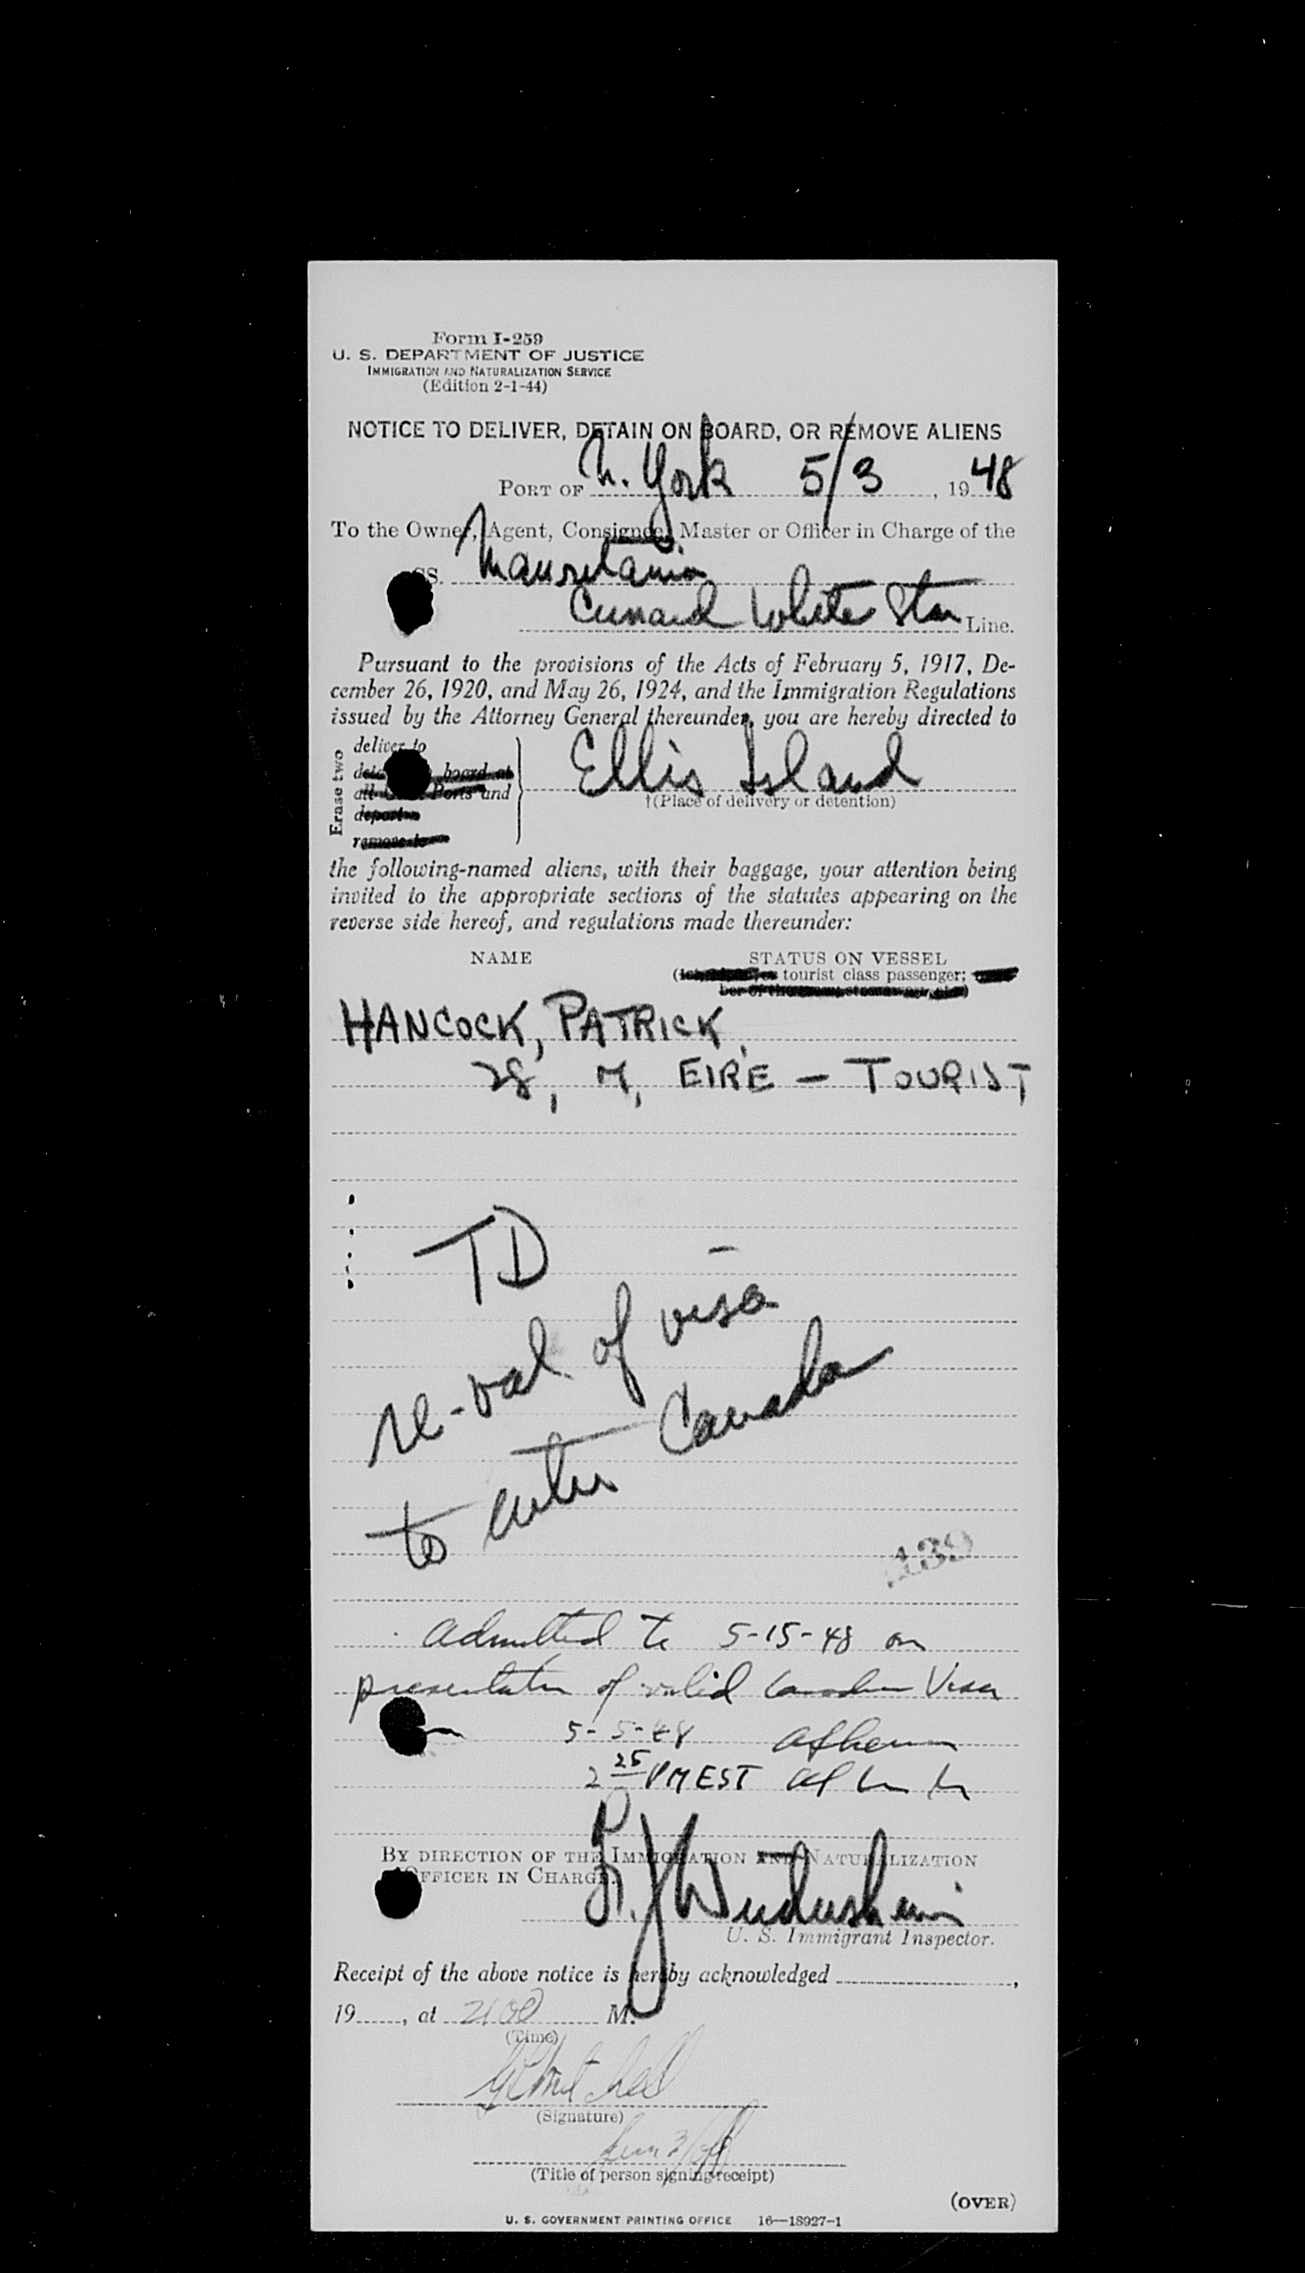 Form I-259
U. S. DEPARTMENT OF JUSTICE
IMMIGRATION AND NATURALIZATION SERVICE
(Edition 2-1-44)
NOTICE TO DELIVER, DETAIN ON BOARD, OR REMOVE ALIENS
PORT OF N. York 5/3, 1948
To the Owner, Agent, Consignee, Master or Officer in Charge of the
SS. Mauretania
Cunard White Star Line.
Pursuant to the provisions of the Acts of February 5, 1917, De-
cember 26, 1920, and May 26, 1924, and the Immigration Regulations
issued by the Attorney General thereunder, you are hereby directed to
Erase two
deliver to
board at
all Ports and
deport
remove to
Ellis Island
†(Place of delivery or detention)
the following-named aliens, with their baggage, your attention being
invited to the appropriate sections of the statutes appearing on the
reverse side hereof, and regulations made thereunder:
NAME STATUS ON VESSEL
( tourist class passenger;
HANCOCK, PATRICK,
28, M, EIRE - TOURIST
TD
re-val of visa
to enter Canada
139
Admitted to 5-15-48 on
presentation of valid Canadian Visa
5-5-48
2 25 PM EST
BY DIRECTION OF THE IMMIGRATION AND NATURALIZATION
OFFICER IN CHARGE.
U. S. Immigrant Inspector.
Receipt of the above notice is hereby acknowledged ,
19 , at 2100 M.
(Time)
(Signature)
(Title of person signing receipt)
(OVER)
U. S. GOVERNMENT PRINTING OFFICE 16—18927-1